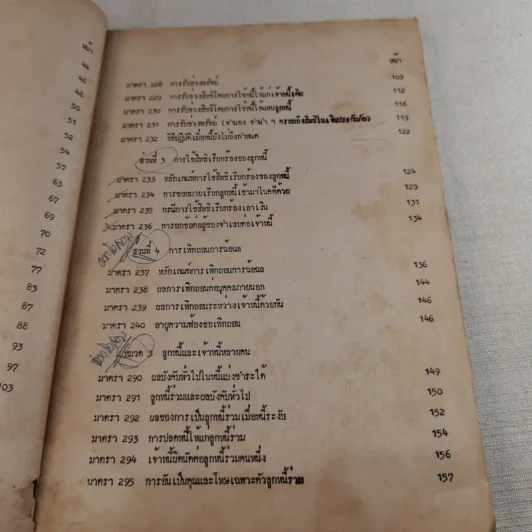 หน้า
50
52
60
66
69
70
72
77
83
87
88
93
97
103
หน้า
มาตรา 228 การรับช่วงทรัพย์ 109
มาตรา 229 การรับช่วงสิทธิโดยการใช้หนี้ให้แก่เจ้าหนี้ 112
มาตรา 230 การรับช่วงสิทธิโดยการใช้หนี้แทนลูกหนี้ 116
มาตรา 231 การรับช่วงทรัพย์ (จำนอง จำนำ ฯ 119
มาตรา 232 วิธีปฏิบัติเมื่อหนี้ยังไม่ถึงกำหนด 122
ส่วนที่ 3 การใช้สิทธิเรียกร้องของลูกหนี้
มาตรา 233 หลักเกณฑ์การใช้สิทธิเรียกร้องของลูกหนี้ 124
มาตรา 234 การขอหมายเรียกลูกหนี้เข้ามาในคดีด้วย 129
มาตรา 235 กรณีการใช้สิทธิเรียกร้องเอาเงิน 131
มาตรา 236 การยกข้อต่อสู้ของจำเลยต่อเจ้าหนี้ 134
ส่วนที่ 4 การเพิกถอนการฉ้อฉล
มาตรา 237 หลักเกณฑ์การเพิกถอนการฉ้อฉล 136
มาตรา 238 ผลการเพิกถอนต่อบุคคลภายนอก 144
มาตรา 239 ผลการเพิกถอนระหว่างเจ้าหนี้ด้วยกัน 146
มาตรา 240 อายุความฟ้องขอเพิกถอน 146
หมวด 3 ลูกหนี้และเจ้าหนี้หลายคน
มาตรา 290 ผลบังคับทั่วไปในหนี้แบ่งชำระได้ 149
มาตรา 291 ลูกหนี้ร่วมและผลบังคับทั่วไป 150
มาตรา 292 ผลของการเป็นลูกหนี้ร่วมเมื่อหนี้ระงับ 152
มาตรา 293 การปลดหนี้ให้แก่ลูกหนี้ร่วม 154
มาตรา 294 เจ้าหนี้ผิดนัดต่อลูกหนี้ร่วมคนหนึ่ง 156
มาตรา 295 การอันเป็นคุณและโทษเฉพาะตัวลูกหนี้ร่วม 157